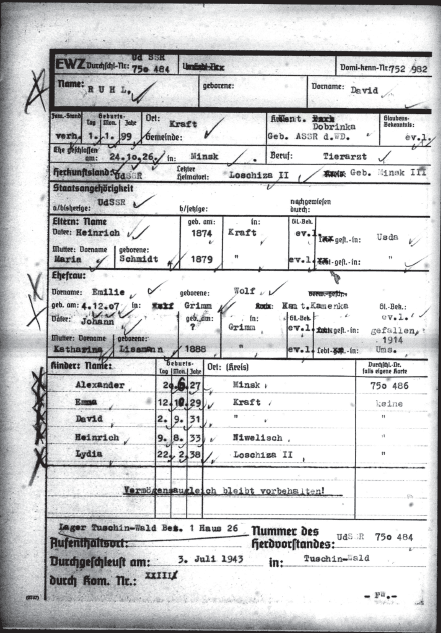 EWZ Durchschl-Nr: Ud SSR 750 484 Domi-kenn-Nr: 752 982
Name: RUHL, geborene: Vorname: David
Fam.-Stand Geburts- Tag Mon. Jahr Ort: Kraft Kant. Dobrinka Glaubens- Bekenntnis:
verh. 1. 1. 99 Gemeinde: Geb. ASSR d.WD. ev.l.
Ehe geschlossen am: 24.10.26. in: Minsk. Beruf: Tierarzt
Herkunftsland: UdSSR Letzter Heimatort: Loschiza II Geb. Minsk III
Staatsangehörigkeit
a/bisherige: UdSSR b/jetzige: nachgewiesen durch:
Eltern: Name geb. am: in: Gl.-Bek.
Vater: Heinrich 1874 Kraft ev.l. gest.-in: Usda
Mutter: Vorname geborene:
Maria Schmidt 1879 " ev.l. gest.-in: "
Ehefrau:
Vorname: Emilie geborene: Wolf
geb. am: 4.12.07 in: Grimm Kant. Kamenka Gl.-Bek.: ev.l.
Vater: Johann geb. am: ? in: Grimm ev.l. gest.-in: gefallen, 1914
Mutter: Vorname geborene:
Katharina Lissmann 1888 " ev.l. lebt in: Ums.
Kinder: Name Geburts- Tag Mon. Jahr Ort: (Kreis) Durchschl.-Nr. falls eigene Karte
Alexander 20. 6. 27 Minsk 750 486
Emma 12. 29 Kraft keine
David 2. 9. 31 " "
Heinrich 9. 8. 33 Niwelisch "
Lydia 22. 2. 38 Loschiza II "
Vermögensaugleich bleibt vorbehalten!
Lager Tuschin-Wald Bes. 1 Haus 26
Aufenthaltsort: Nummer des Herdvorstandes: UdSSR 750 484
Durchgeschleust am: 3. Juli 1943 in: Tuschin-Wald
durch Kom. Nr.: XXIII/